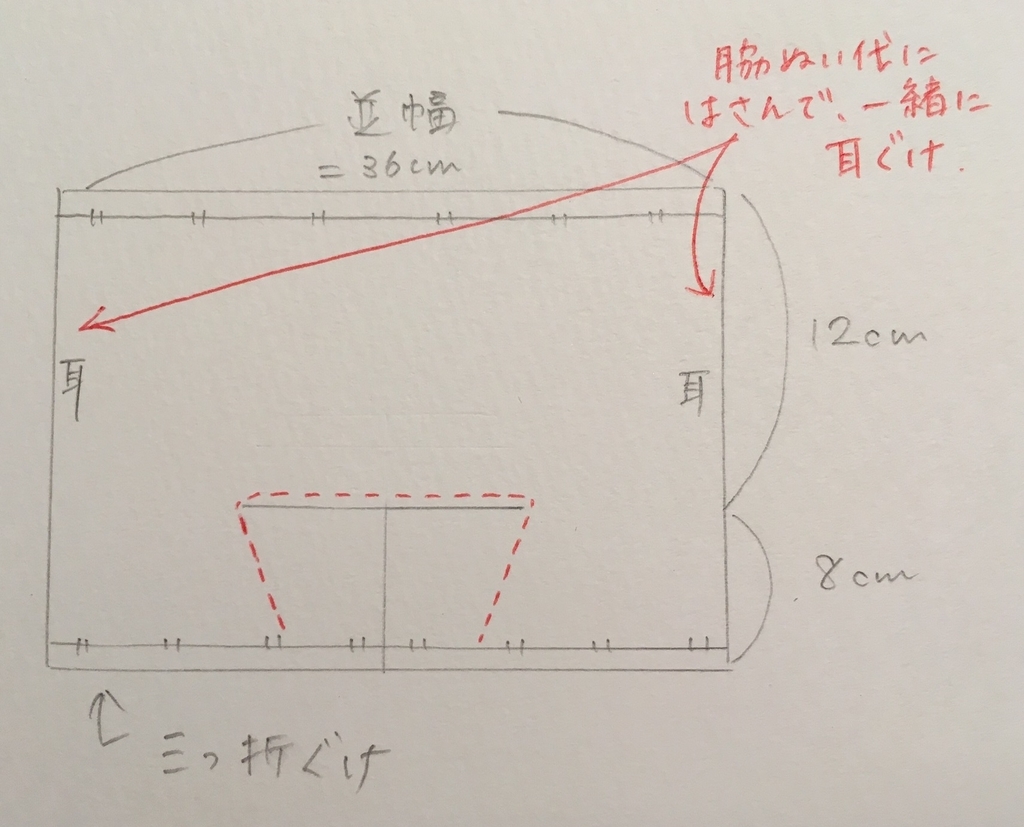 脇ぬい代に
はさんで、一緒に
耳ぐけ.
並幅
=36cm
12cm
耳
耳
8cm
三つ折ぐけ